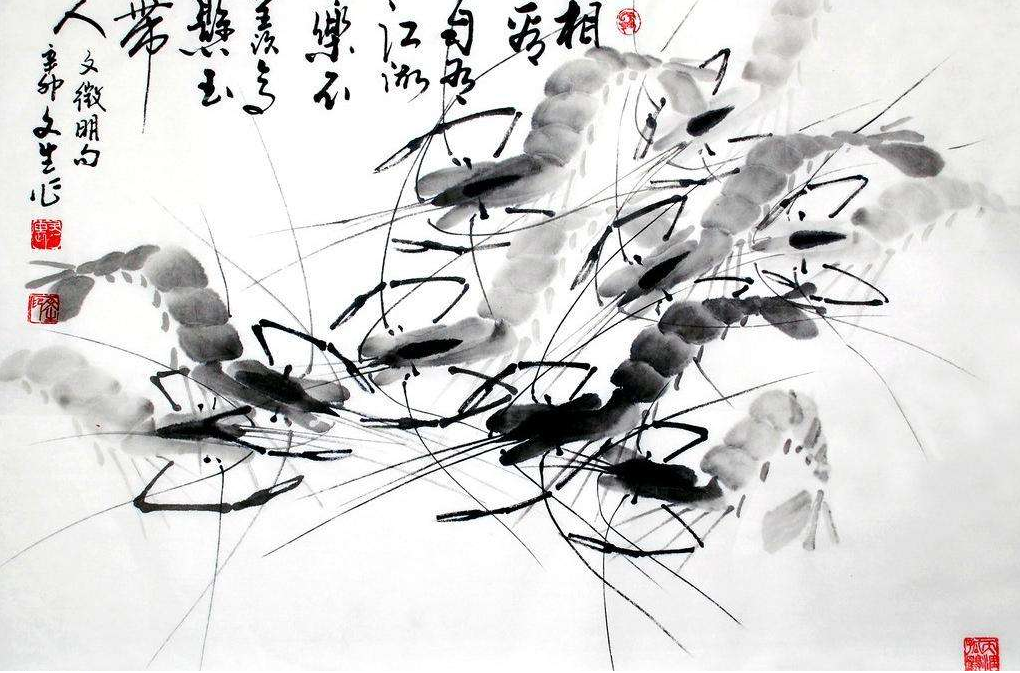 相
看
自有
江湖
樂不
羨高
懸玉
帶
人
文徵明句
辛卯文生作